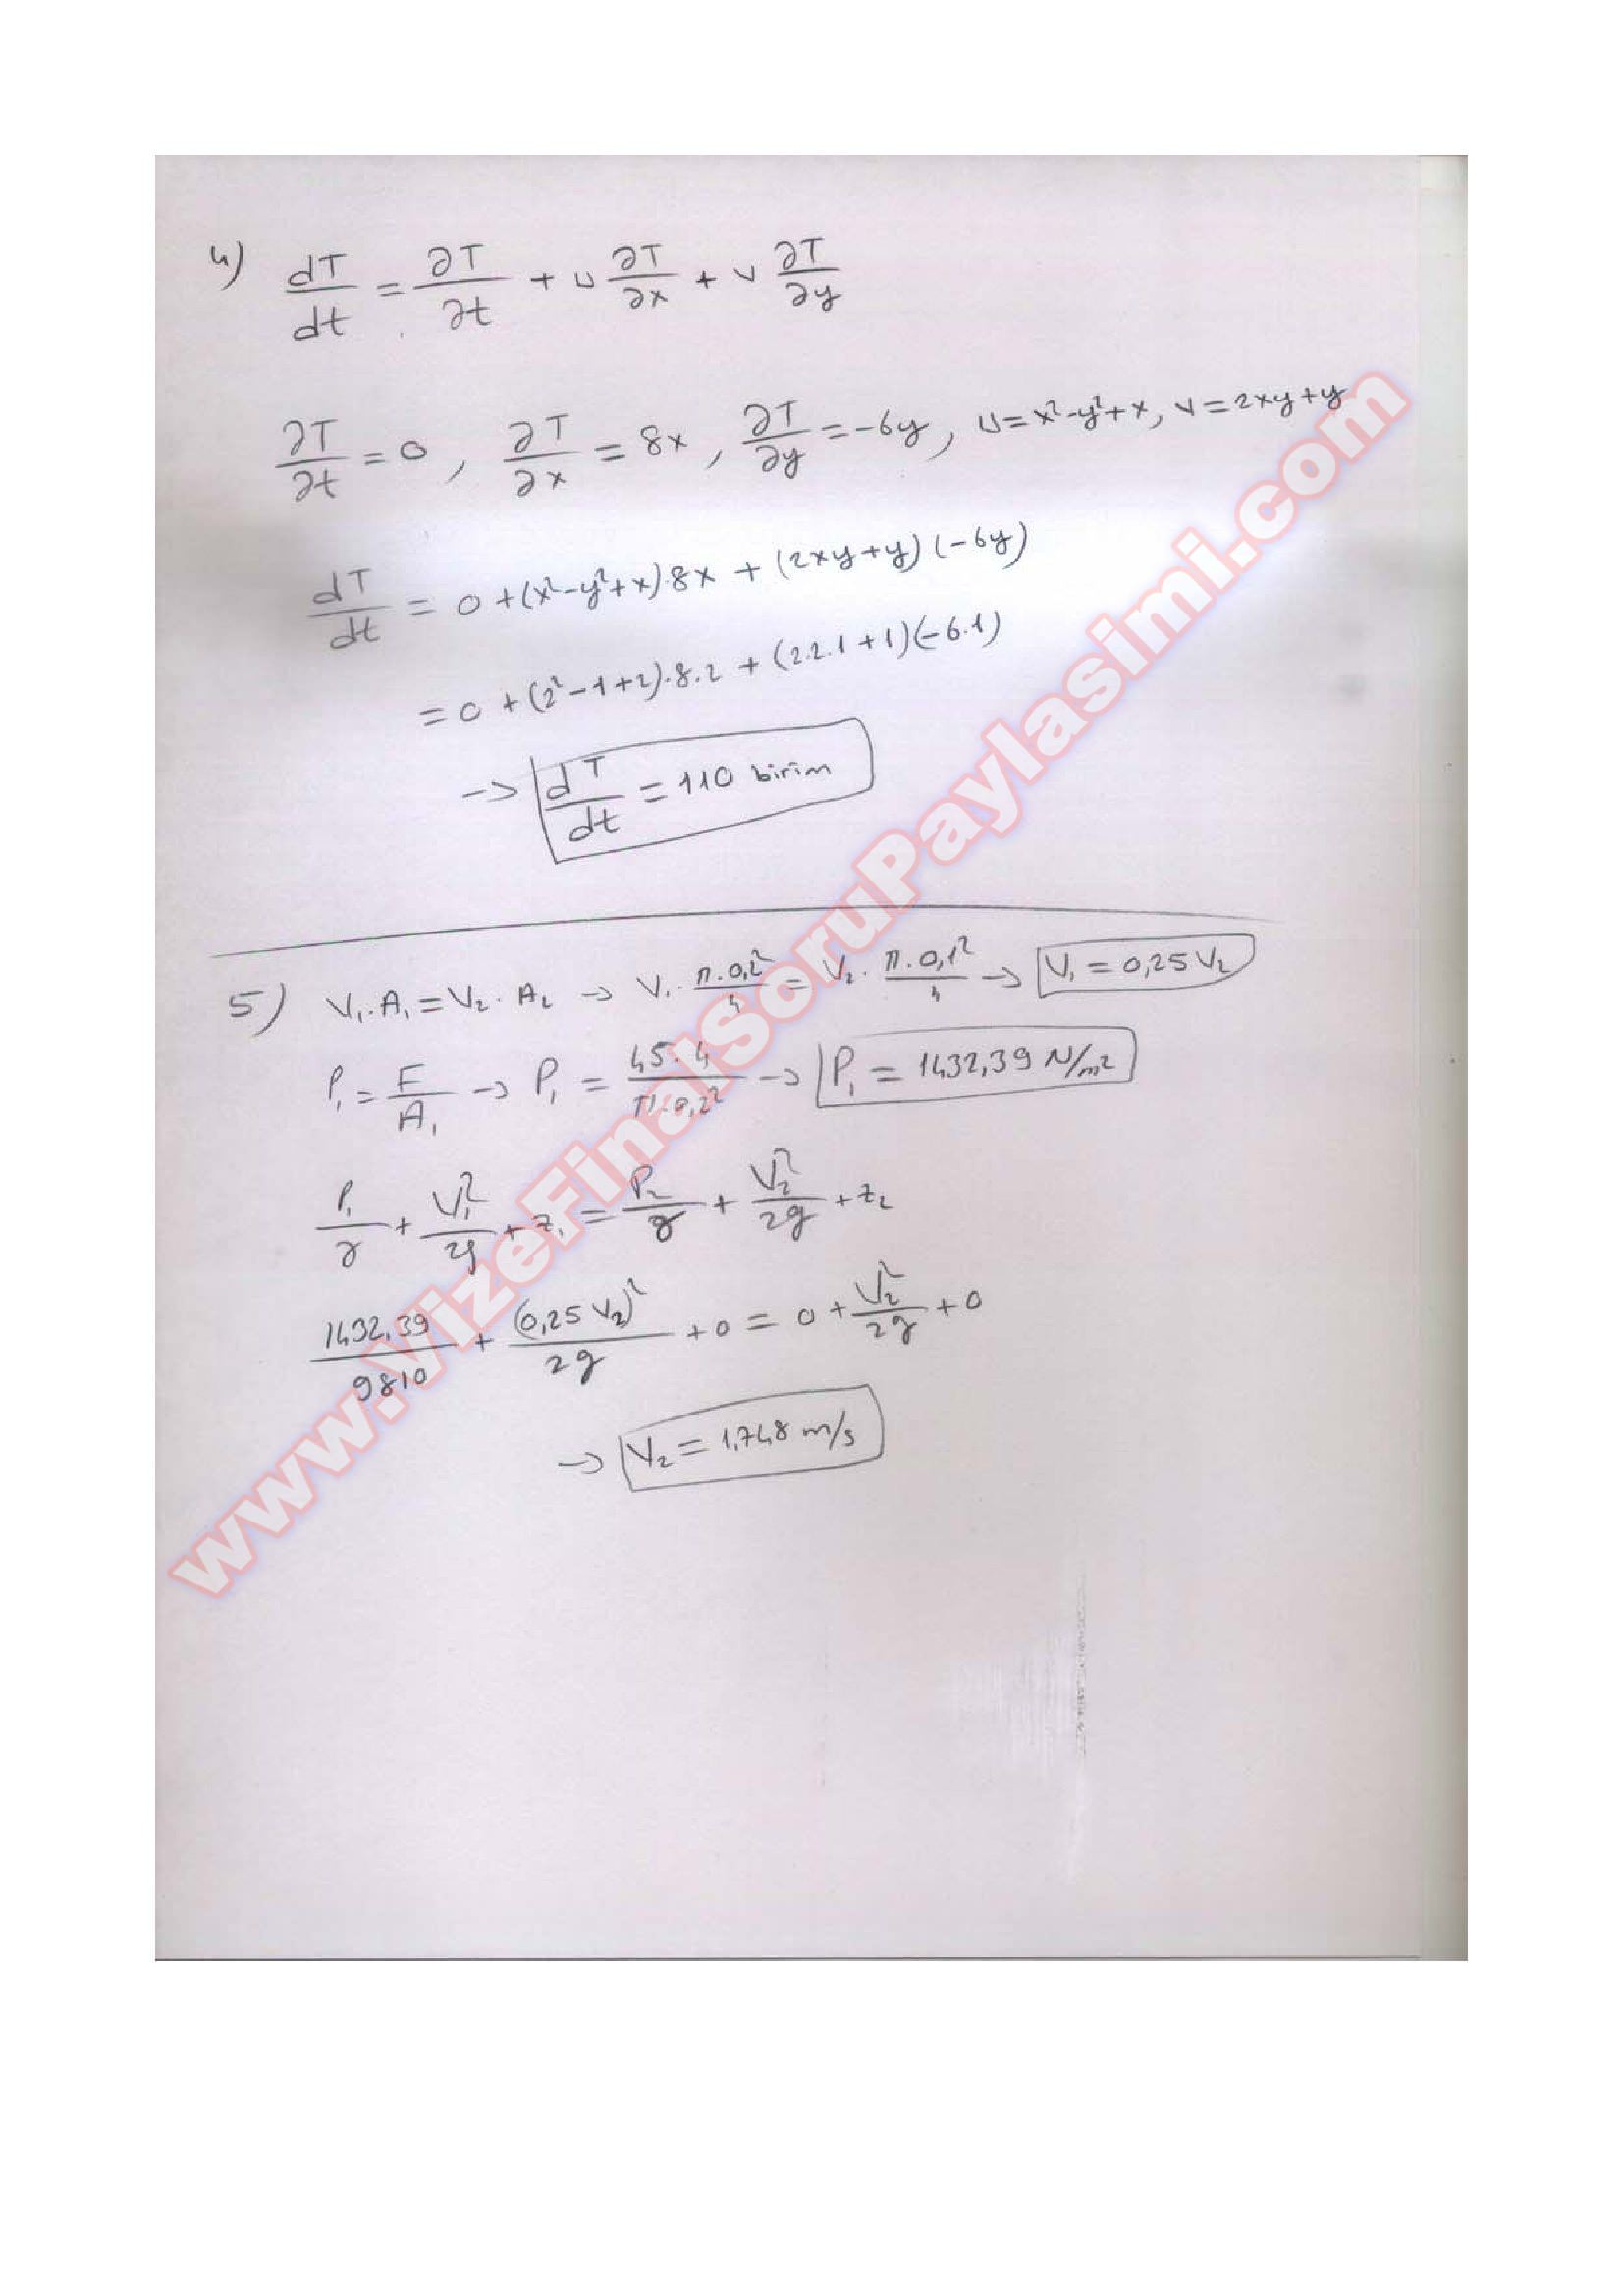 4) dT/dt = ∂T/∂t + u ∂T/∂x + v ∂T/∂y
∂T/∂t = 0, ∂T/∂x = 8x, ∂T/∂y = -6y, u = x²-y²+x, v = 2xy+y
dT/dt = 0 + (x²-y²+x)8x + (2xy+y)(-6y)
= 0 + (2²-1+2).8.2 + (2.2.1+1)(-6.1)
→ dT/dt = 110 birim
5) V₁.A₁ = V₂.A₂ → V₁. π.0,2²/4 = V₂. π.0,1²/4 → V₁ = 0,25 V₂
P₁ = F/A₁ → P₁ = 45.4/π.0,2² → P₁ = 1432,39 N/m²
P₁/γ + V₁²/2g + z₁ = P₂/γ + V₂²/2g + z₂
1432,39/9810 + (0,25 V₂)²/2g + 0 = 0 + V₂²/2g + 0
→ V₂ = 1,748 m/s
www.VizeFinalSoruPaylasimi.com